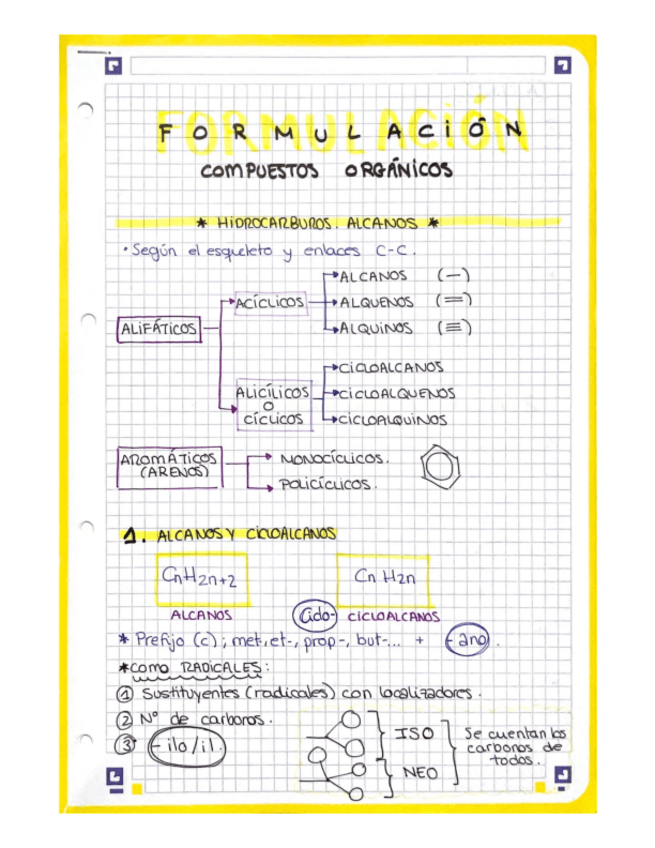 FORMULACIÓN
COMPUESTOS ORGÁNICOS
* HIDROCARBUROS. ALCANOS *
• Según el esqueleto y enlaces C-C.
ALIFÁTICOS
ACÍCLICOS
ALCANOS (—)
ALQUENOS (=)
ALQUINOS (≡)
ALICÍLICOS
O
CÍCLICOS
CICLOALCANOS
CICLOALQUENOS
CICLOALQUINOS
AROMÁTICOS
(ARENOS)
MONOCÍCLICOS.
POLICÍCLICOS.
1. ALCANOS Y CICLOALCANOS
CnH2n+2
Cn H2n
ALCANOS
Ciclo- CICLOALCANOS
* Prefijo (c); met-, et-, prop-, but-... + -ano.
*COMO RADICALES:
① Sustituyentes (radicales) con localizadores.
② Nº de carbonos.
③ -ilo/il.
ISO
NEO
Se cuentan los
carbonos de
todos.